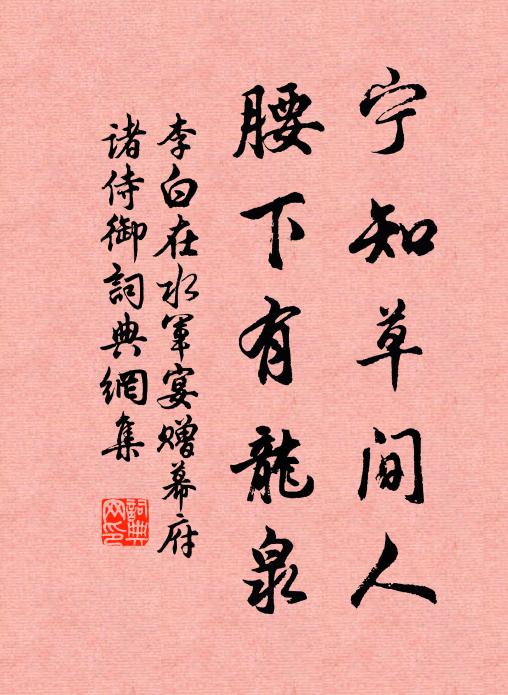 宁知草间人
腰下有龍泉
李白在水军宴赠幕府
诸侍御詞典網集
詞典
网印